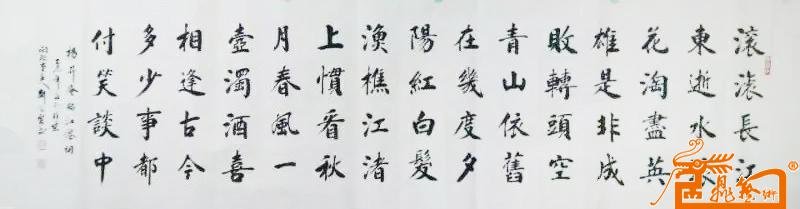 滚滚長江
東逝水浪
花淘盡英
雄是非成
敗轉頭空
青山依舊
在幾度夕
陽紅白髮
漁樵江渚
上慣看秋
月春風一
壺濁酒喜
相逢古今
多少事都
付笑談中
楊升庵臨江仙詞